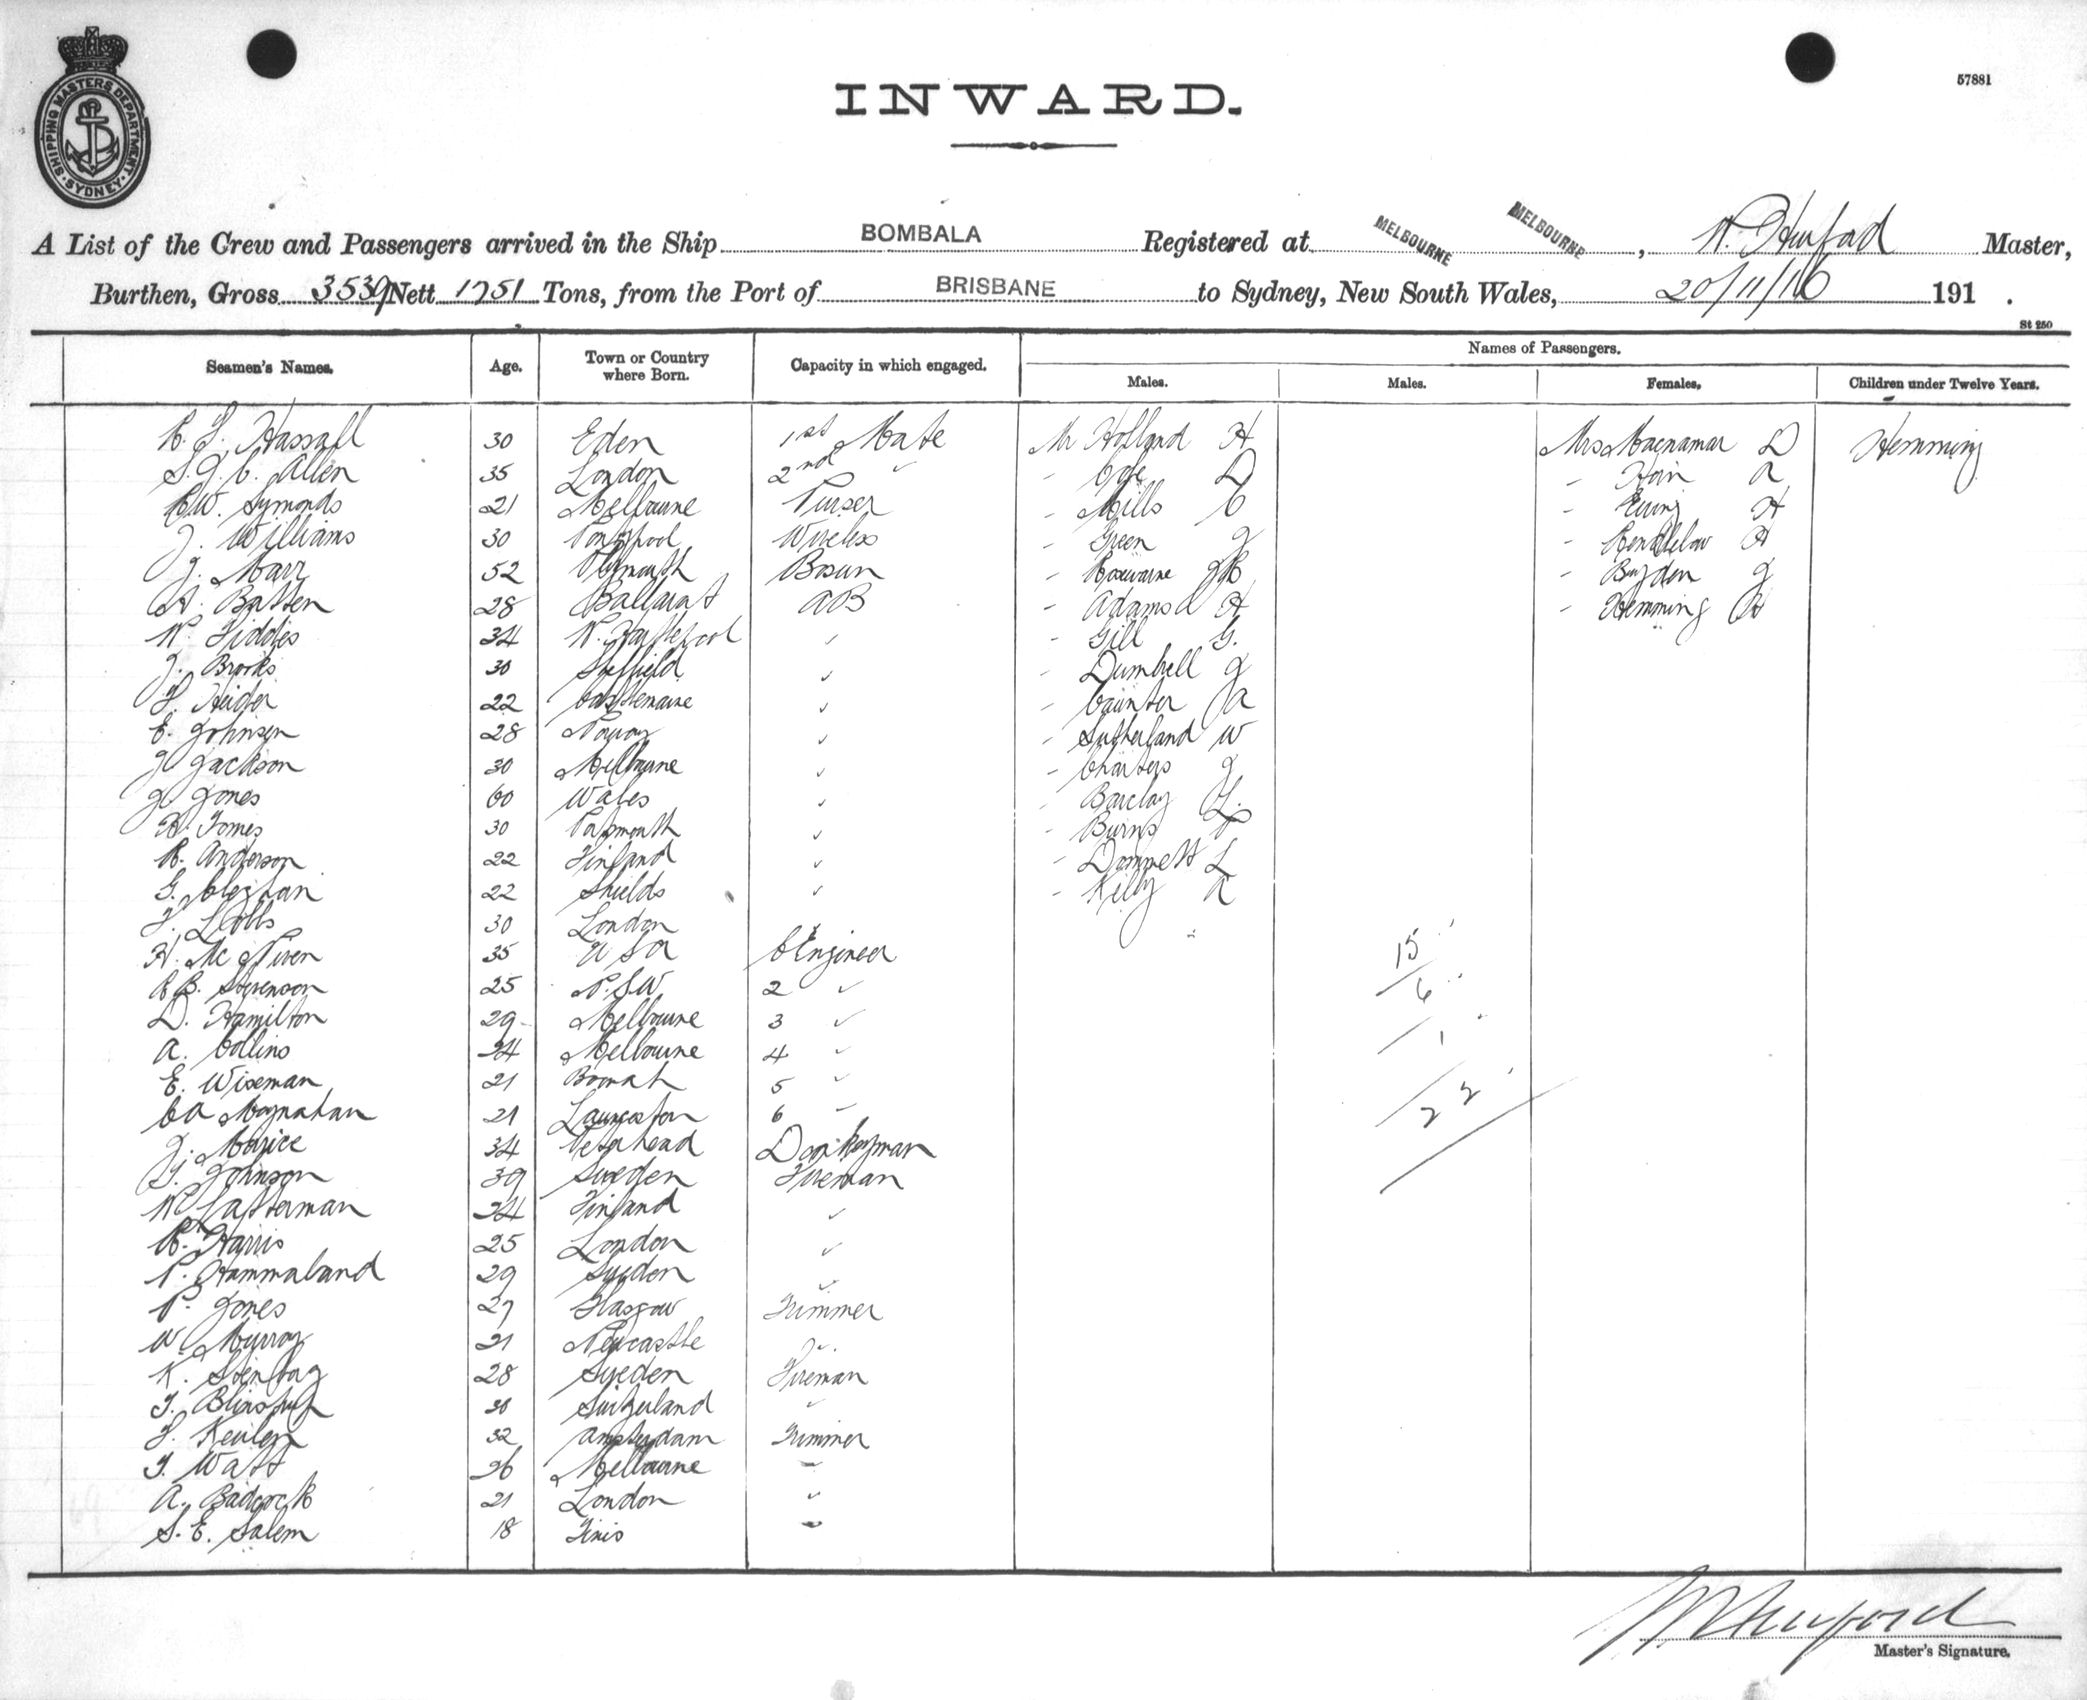 57881
SHIPPING MASTERS DEPARTMENT. SYDNEY.
INWARD.
A List of the Crew and Passengers arrived in the Ship BOMBALA Registered at MELBOURNE MELBOURNE, Master,
Burthen, Gross 3539 Nett 1751 Tons, from the Port of BRISBANE to Sydney, New South Wales, 20/11/16 191 .
St 250
Seamen's Names. Age. Town or Country where Born. Capacity in which engaged. Names of Passengers.
Males. Males. Females. Children under Twelve Years.
Hassall 30 Eden 1st Mate Mr Holland H Mrs Macnamar D Hemming
Allen 35 London 2nd " - Cole D - Hain a
Symonds 21 Melbourne Purser - Mills C - Ewing H
J. Williams 30 Pontypool Wireless - Green g - H
J. Marr 52 Plymouth Bosun - - Boyden g
A. Batten 28 Ballarat AB - Adams H - Hemming H
W. Fiddes 34 W. Hartlepool " - Gill G.
J. Brooks 30 Sheffield " - Dumbell g
Heider 22 Castlemaine " - Caunter a
E. Johnsen 28 Norway " - Sutherland W
J Jackson 30 Melbourne " - Charters g
J. Jones 60 Wales " - Barclay
H. Tomes 30 " - Burns
R. Anderson 22 Finland " - Dommett L
G. Cleghan 22 Shields " - Kelly
30 London
H. McNiven 35 USA C Engineer 15
R.B. Stevenson 25 N.SW 2 " 6
D. Hamilton 29 Melbourne 3 " 1
A. Collins 24 Melbourne 4 "
E. Wiseman 21 5 " 22
C A Moynahan 21 Launceston 6 "
J. 34 Peterhead Donkeyman
Johnson 39 Sweden Fireman
24 Finland "
R. Harris 25 London "
P. Hammaland 29 Sweden "
P. Jones 27 Glasgow Trimmer
W. Murray 21 Newcastle "
K. 28 Sweden Fireman
Switzerland "
Keulen 32 Amsterdam Trimmer
T. Watt 26 Melbourne "
A. Badcock 21 London "
S. E. Salem 18 "
Master's Signature.